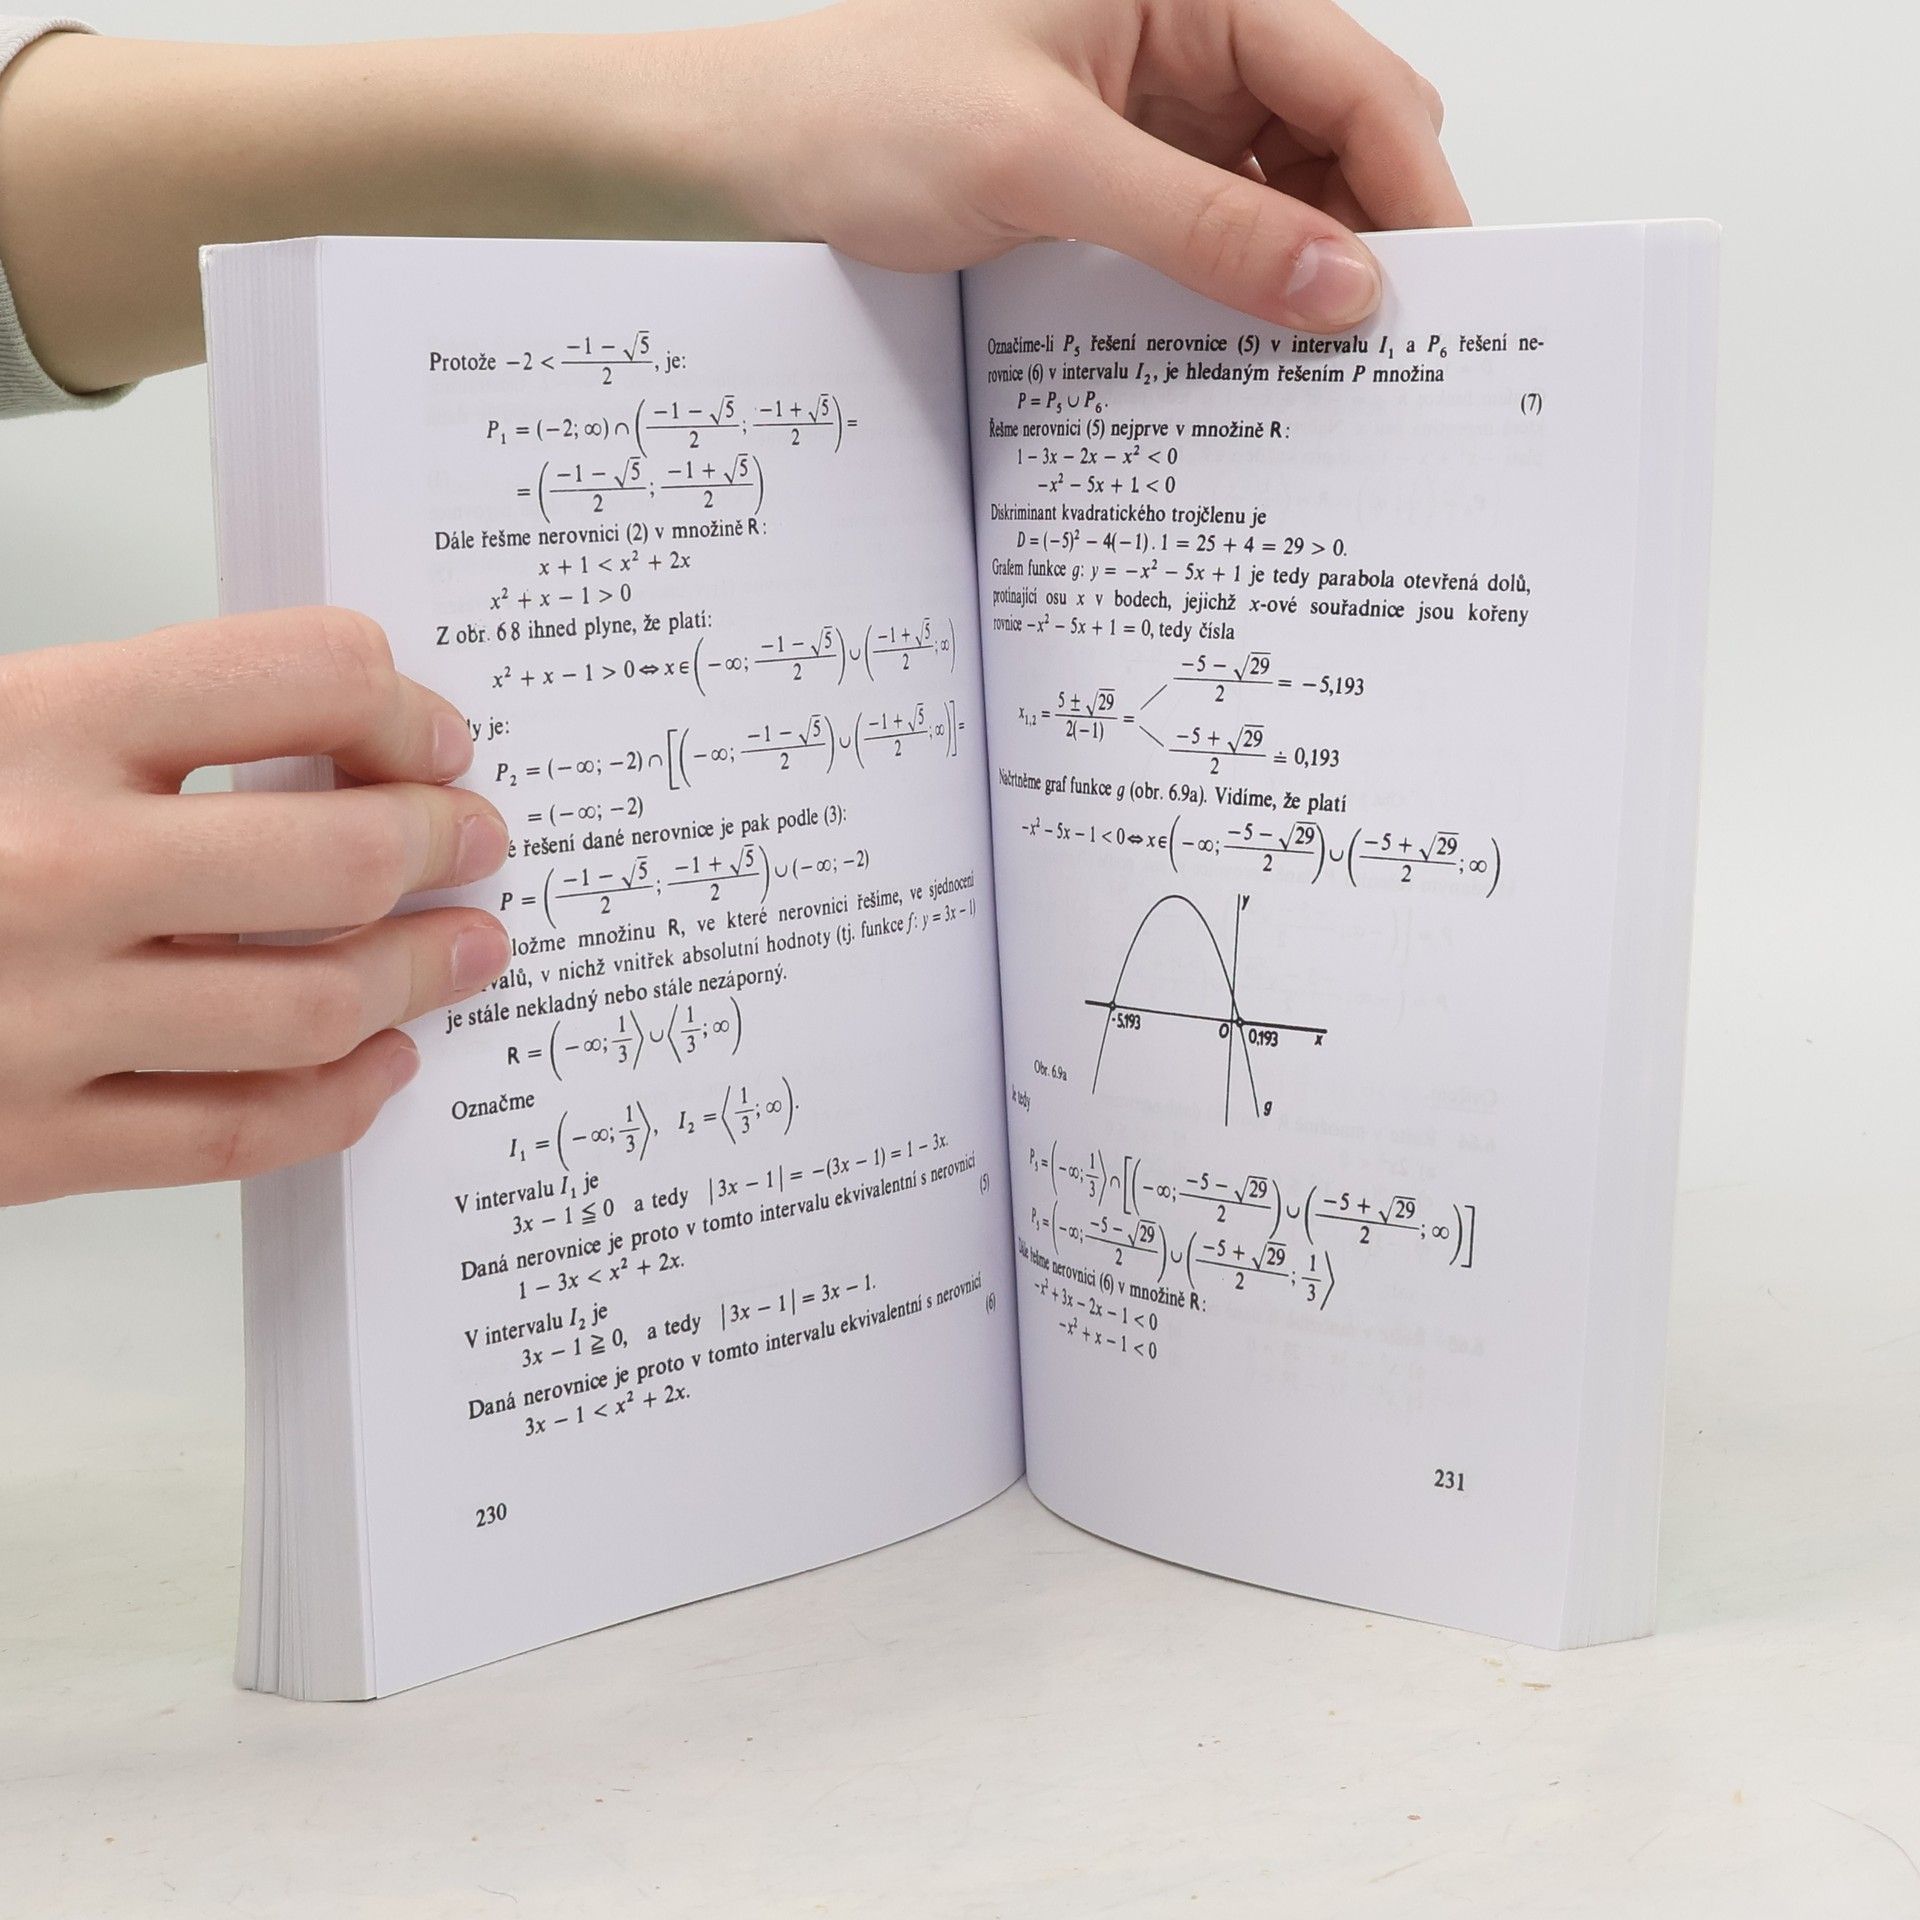 Protože −2 < (−1 − √5)/2, je:
P₁ = (−2; ∞) ∩ ((−1 − √5)/2; (−1 + √5)/2) =
= ((−1 − √5)/2; (−1 + √5)/2)
Dále řešme nerovnici (2) v množině R:
x + 1 < x² + 2x
x² + x − 1 > 0
Z obr. 6 8 ihned plyne, že platí:
x² + x − 1 > 0 ⇔ x ∈ (−∞; (−1 − √5)/2) ∪ ((−1 + √5)/2; ∞)
y je:
P₂ = (−∞; −2) ∩ [(−∞; (−1 − √5)/2) ∪ ((−1 + √5)/2; ∞)] =
= (−∞; −2)
é řešení dané nerovnice je pak podle (3):
P = ((−1 − √5)/2; (−1 + √5)/2) ∪ (−∞; −2)
ložme množinu R, ve které nerovnici řešíme, ve sjednocení
valů, v nichž vnitřek absolutní hodnoty (tj. funkce f: y = 3x − 1)
je stále nekladný nebo stále nezáporný.
R = (−∞; 1/3⟩ ∪ ⟨1/3; ∞)
Označme
I₁ = (−∞; 1/3⟩, I₂ = ⟨1/3; ∞).
V intervalu I₁ je
3x − 1 ≦ 0 a tedy |3x − 1| = −(3x − 1) = 1 − 3x.
Daná nerovnice je proto v tomto intervalu ekvivalentní s nerovnicí
1 − 3x < x² + 2x. (5)
V intervalu I₂ je
3x − 1 ≧ 0, a tedy |3x − 1| = 3x − 1.
Daná nerovnice je proto v tomto intervalu ekvivalentní s nerovnicí
3x − 1 < x² + 2x. (6)
230
Označíme-li P₅ řešení nerovnice (5) v intervalu I₁ a P₆ řešení ne-
rovnice (6) v intervalu I₂, je hledaným řešením P množina
P = P₅ ∪ P₆. (7)
Řešme nerovnici (5) nejprve v množině R:
1 − 3x − 2x − x² < 0
−x² − 5x + 1 < 0
Diskriminant kvadratického trojčlenu je
D = (−5)² − 4(−1) . 1 = 25 + 4 = 29 > 0.
Grafem funkce g: y = −x² − 5x + 1 je tedy parabola otevřená dolů,
protínající osu x v bodech, jejichž x-ové souřadnice jsou kořeny
rovnice −x² − 5x + 1 = 0, tedy čísla
(−5 − √29)/2 = −5,193
x₁,₂ = (5 ± √29)/(2(−1)) =
(−5 + √29)/2 ≐ 0,193
Načrtněme graf funkce g (obr. 6.9a). Vidíme, že platí
−x² − 5x − 1 < 0 ⇔ x ∈ (−∞; (−5 − √29)/2) ∪ ((−5 + √29)/2; ∞)
y
-5,193
0
0,193
x
g
Obr. 6.9a
Je tedy
P₅ = (−∞; 1/3⟩ ∩ [(−∞; (−5 − √29)/2) ∪ ((−5 + √29)/2; ∞)]
P₅ = (−∞; (−5 − √29)/2) ∪ ((−5 + √29)/2; 1/3⟩
Dále řešme nerovnici (6) v množině R:
−x² + 3x − 2x − 1 < 0
−x² + x − 1 < 0
231